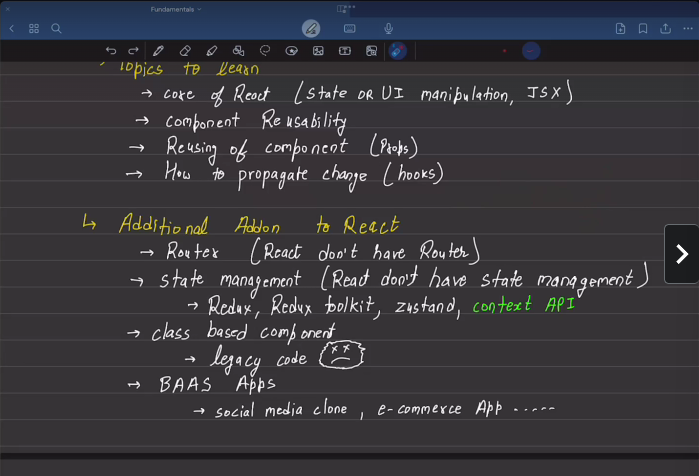 Fundamentals
Topics to learn
→ core of React (State OR UI manipulation, JSX)
→ component Reusability
→ Reusing of component (Props)
→ How to propagate change (hooks)
↳ Additional Addon to React
→ Router (React don't have Router)
→ state management (React don't have state management)
→ Redux, Redux toolkit, zustand, context API
→ class based component
→ legacy code
→ BAAS Apps
→ social media clone, e-commerce App .....